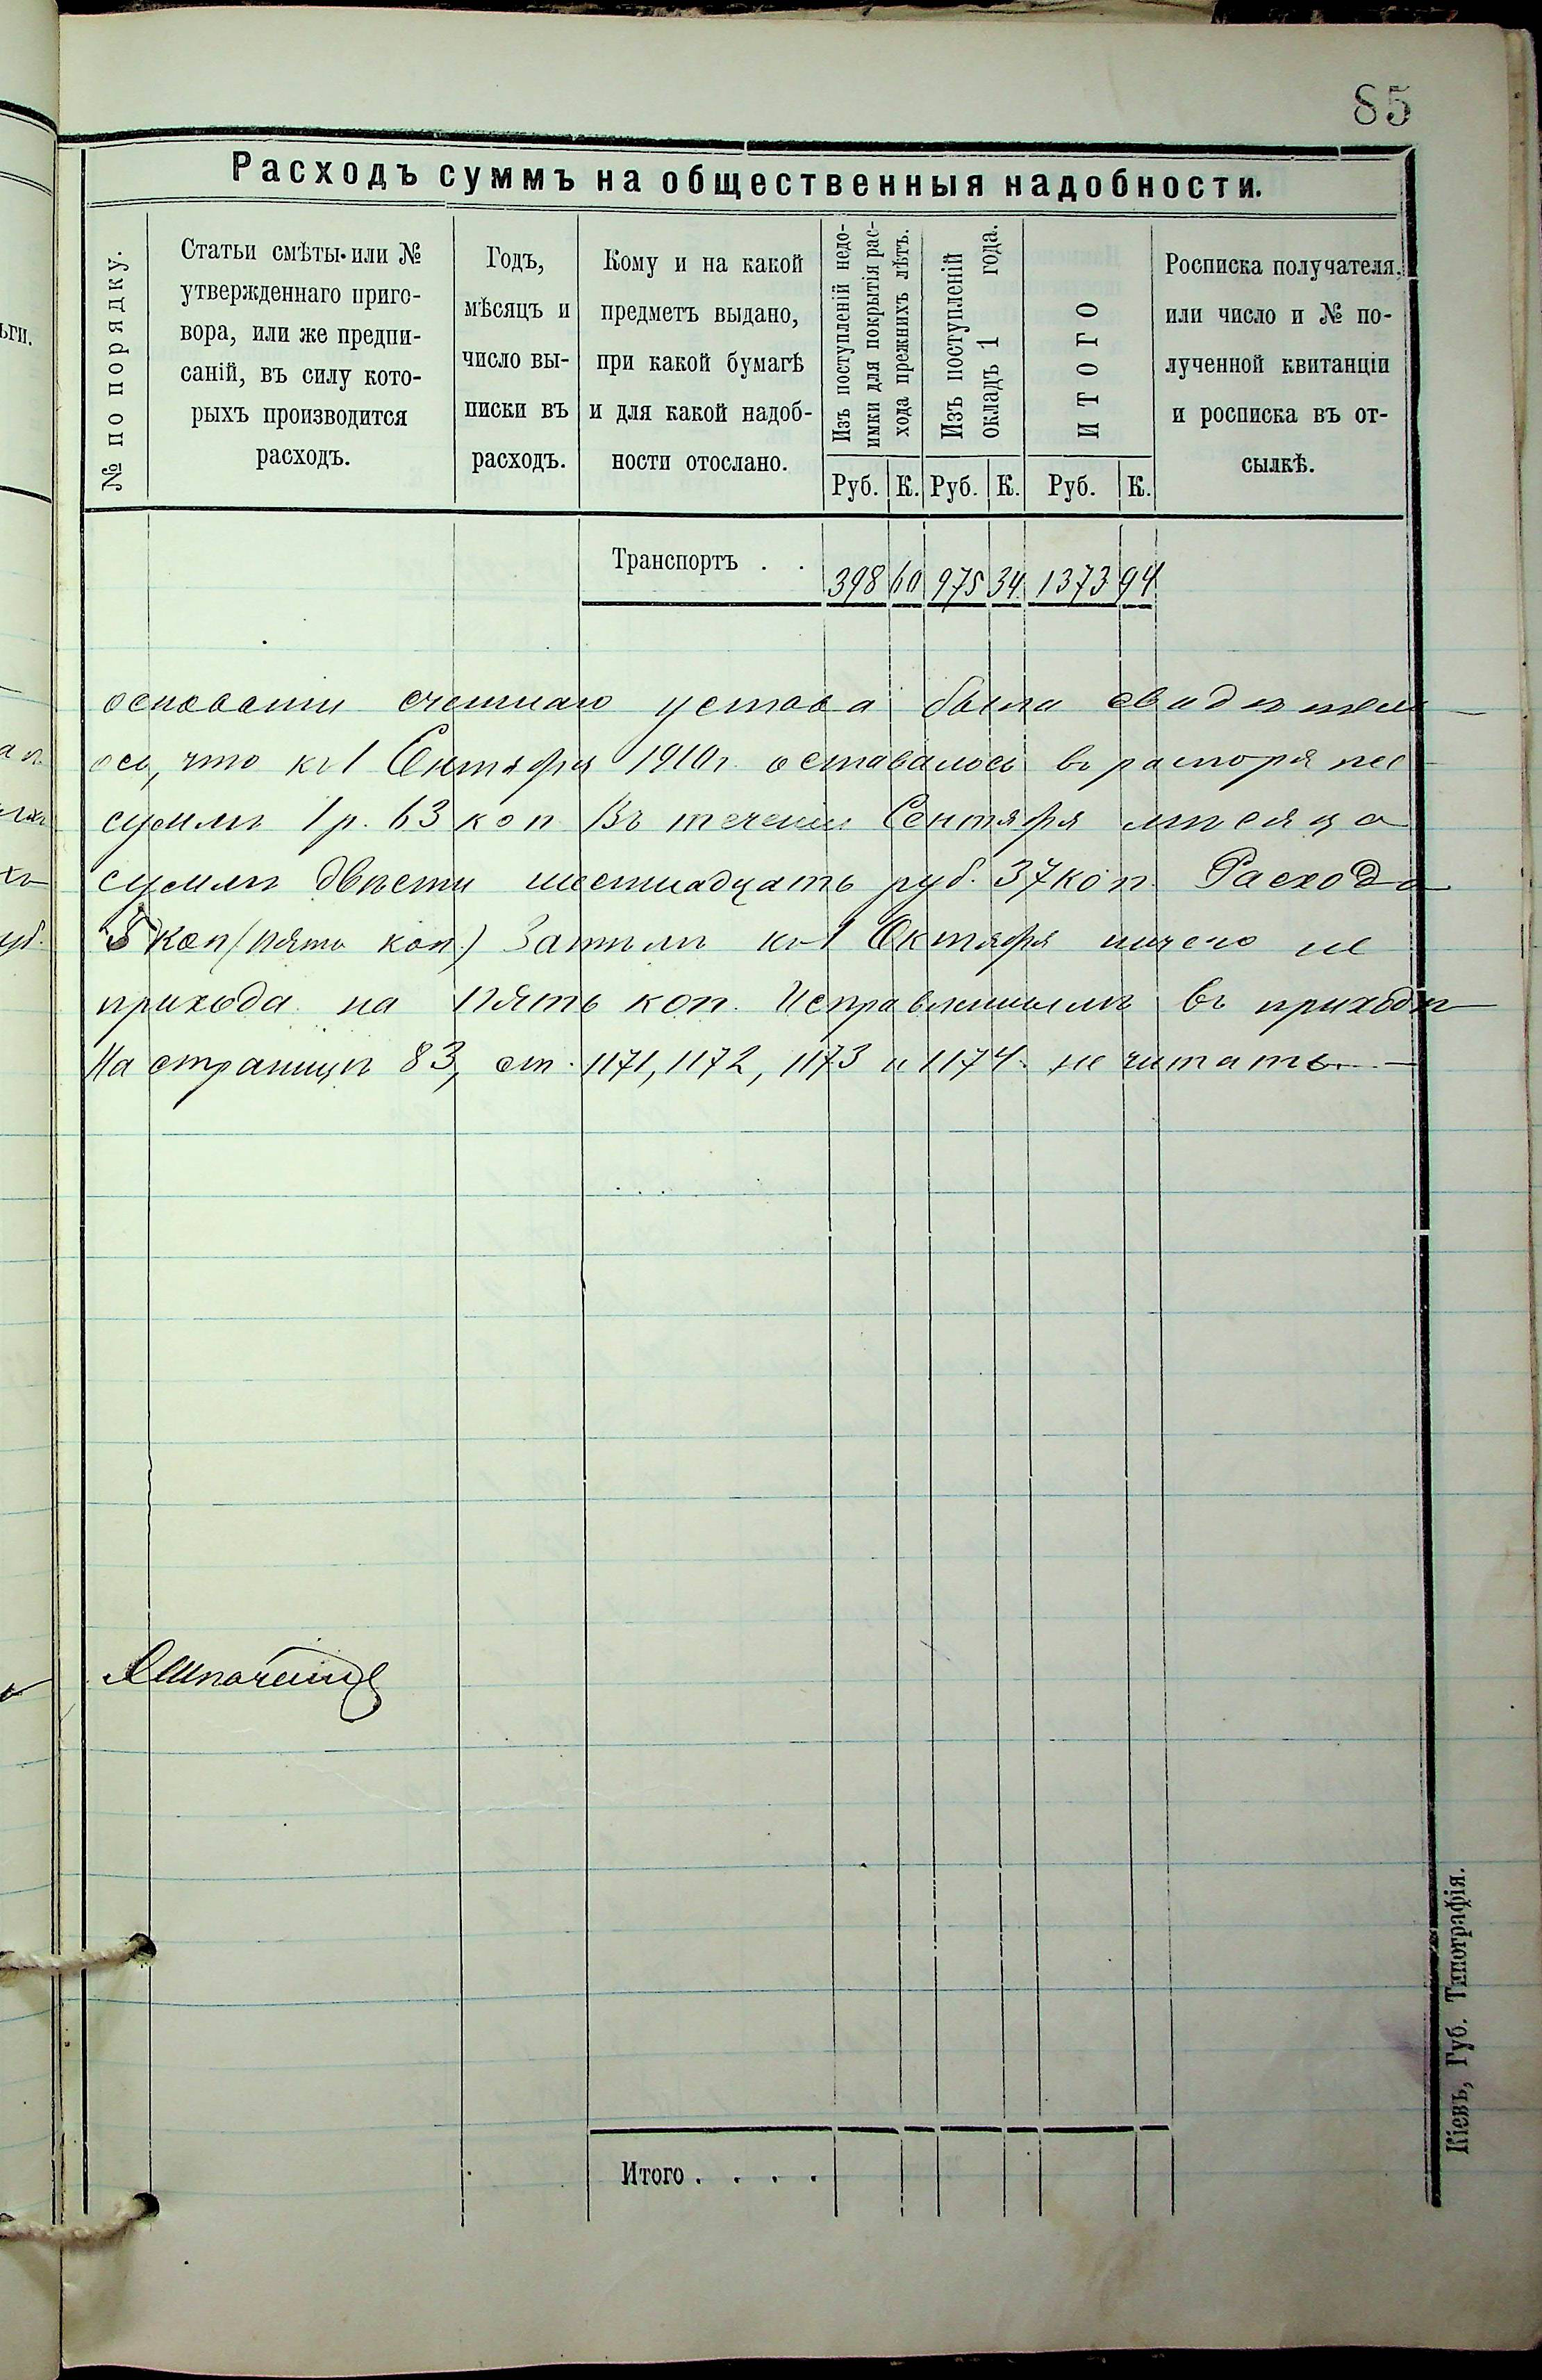 85
Расходъ суммъ на общественныя надобности.
№ по порядку.
Статьи смѣты или №
утвержденнаго приго-
вора, или же предпи-
саній, въ силу кото-
рыхъ производится
расходъ.
Годъ,
мѣсяцъ и
число вы-
писки въ
расходъ.
Кому и на какой
предметъ выдано,
при какой бумагѣ
и для какой надоб-
ности отослано.
Изъ поступленій недо-
имки для покрытія рас-
хода прежнихъ лѣтъ.
Изъ поступленій
окладъ 1 года.
ИТОГО
Росписка получателя,
или число и № по-
лученной квитанціи
и росписка въ от-
сылкѣ.
Руб. К. Руб. К. Руб. К.
Транспортъ . . 398 60 975 34 1373 94
счетнаго устава была свидѣтель
ось, что къ 1 Сентября 1910 г. оставалось въ распоряже
суммъ 1 р. 63 коп Въ теченіи Сентября мѣсяца
суммъ двѣсти шестнадцать руб. 37 коп. Расхода
5 коп (пять коп.) Затѣмъ къ 1 Октября ничего не
прихода на пять коп. Исправленнымъ въ приходѣ
На страницѣ 83, ст. 1171, 1172, 1173 и 1174 не читать. —
Итого . . . .
Кіевъ, Губ. Типографія.